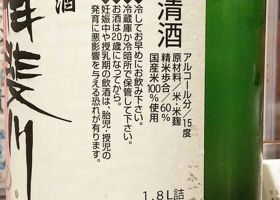 清酒
アルコール分／15度
原材料／米・米麹
精米歩合／60%
国産米100%使用
冷してお早めにお飲み下さい。
冷蔵庫か冷暗所で保管して下さい。
お酒は20歳になってから。
妊娠中や授乳期の飲酒は、胎児・授児の
発育に悪影響を与える恐れが有ります。
1.8L詰
酒
斐川